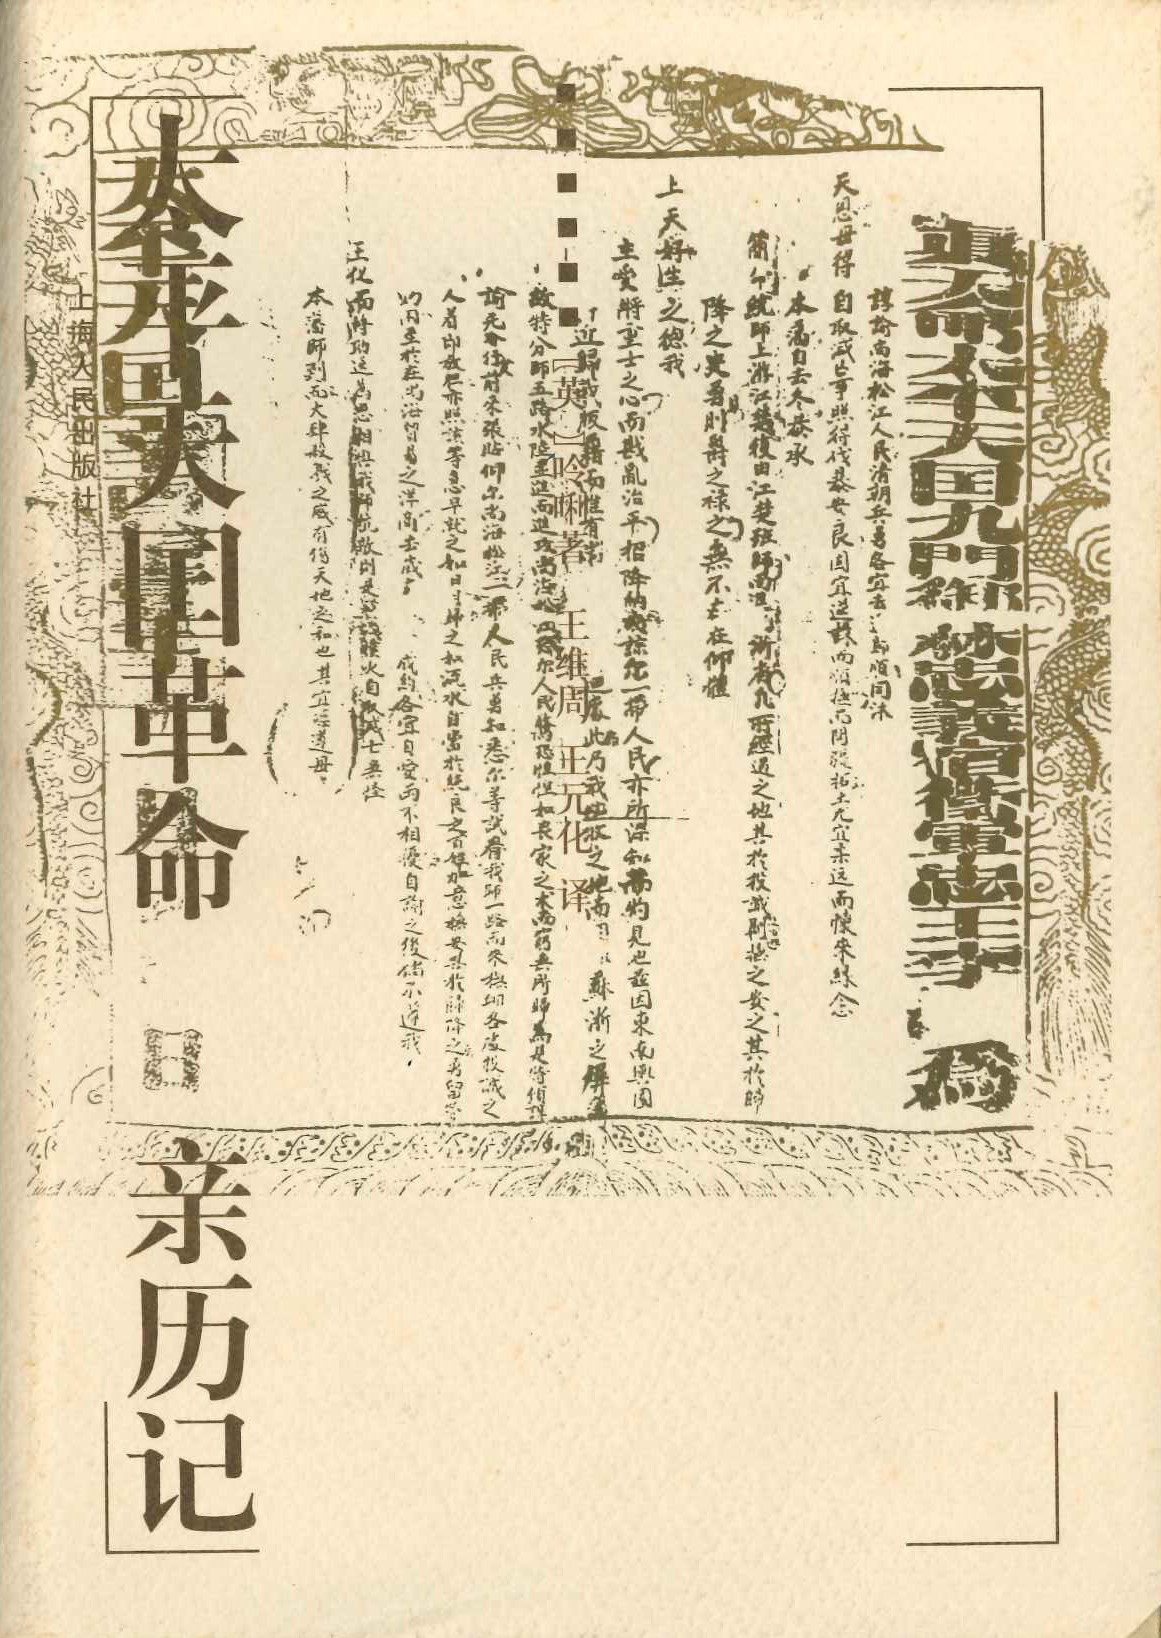 太平天国革命
亲历记
上海人民出版社
[英]呤唎著 王维周 王元化 译
真天命太平天国九門御林忠義宿衛軍忠王李 為
諄諭尚海松江人民清朝兵勇各宜去逆歸順同沐
天恩毋得自取滅亡事照得伐暴安良固宜逆誅而順撫而開疆拓土尤宜柔遠而懷來緣念
本藩自去冬恭承
簡命統師上游江楚復由江楚班師而進浙省凡所經過之地其於投誠則撫之安之其於歸
降之 爵之祿之無不 在仰體
上天好生之德我
主愛將重士之心而戡亂治平招降納 一帶人民亦所深知 灼見也茲因東南輿圖
歸我版籍 惟有尚 此乃我 之地而 蘇浙之屏藩
故特分師五路水陸並進而進攻尚海 尔人民驚恐 喪家之犬而窮無所歸為是特
諭先行前來張貼仰尔尚海松江一帶人民兵勇知悉尔等試看我師一路而來 各處投誠之
人 亦照該等急早就之如日月歸之如流水自當於純良之百姓加意撫安其於歸降之勇留營
至於在尚海貿易之洋商去歲 成約各宜自愛而不相擾自諭之後倘不遵我
王化而 是 火自取滅亡無怪
本藩師到而大肆殺戮之威有傷天地之和也其宜凜遵毋